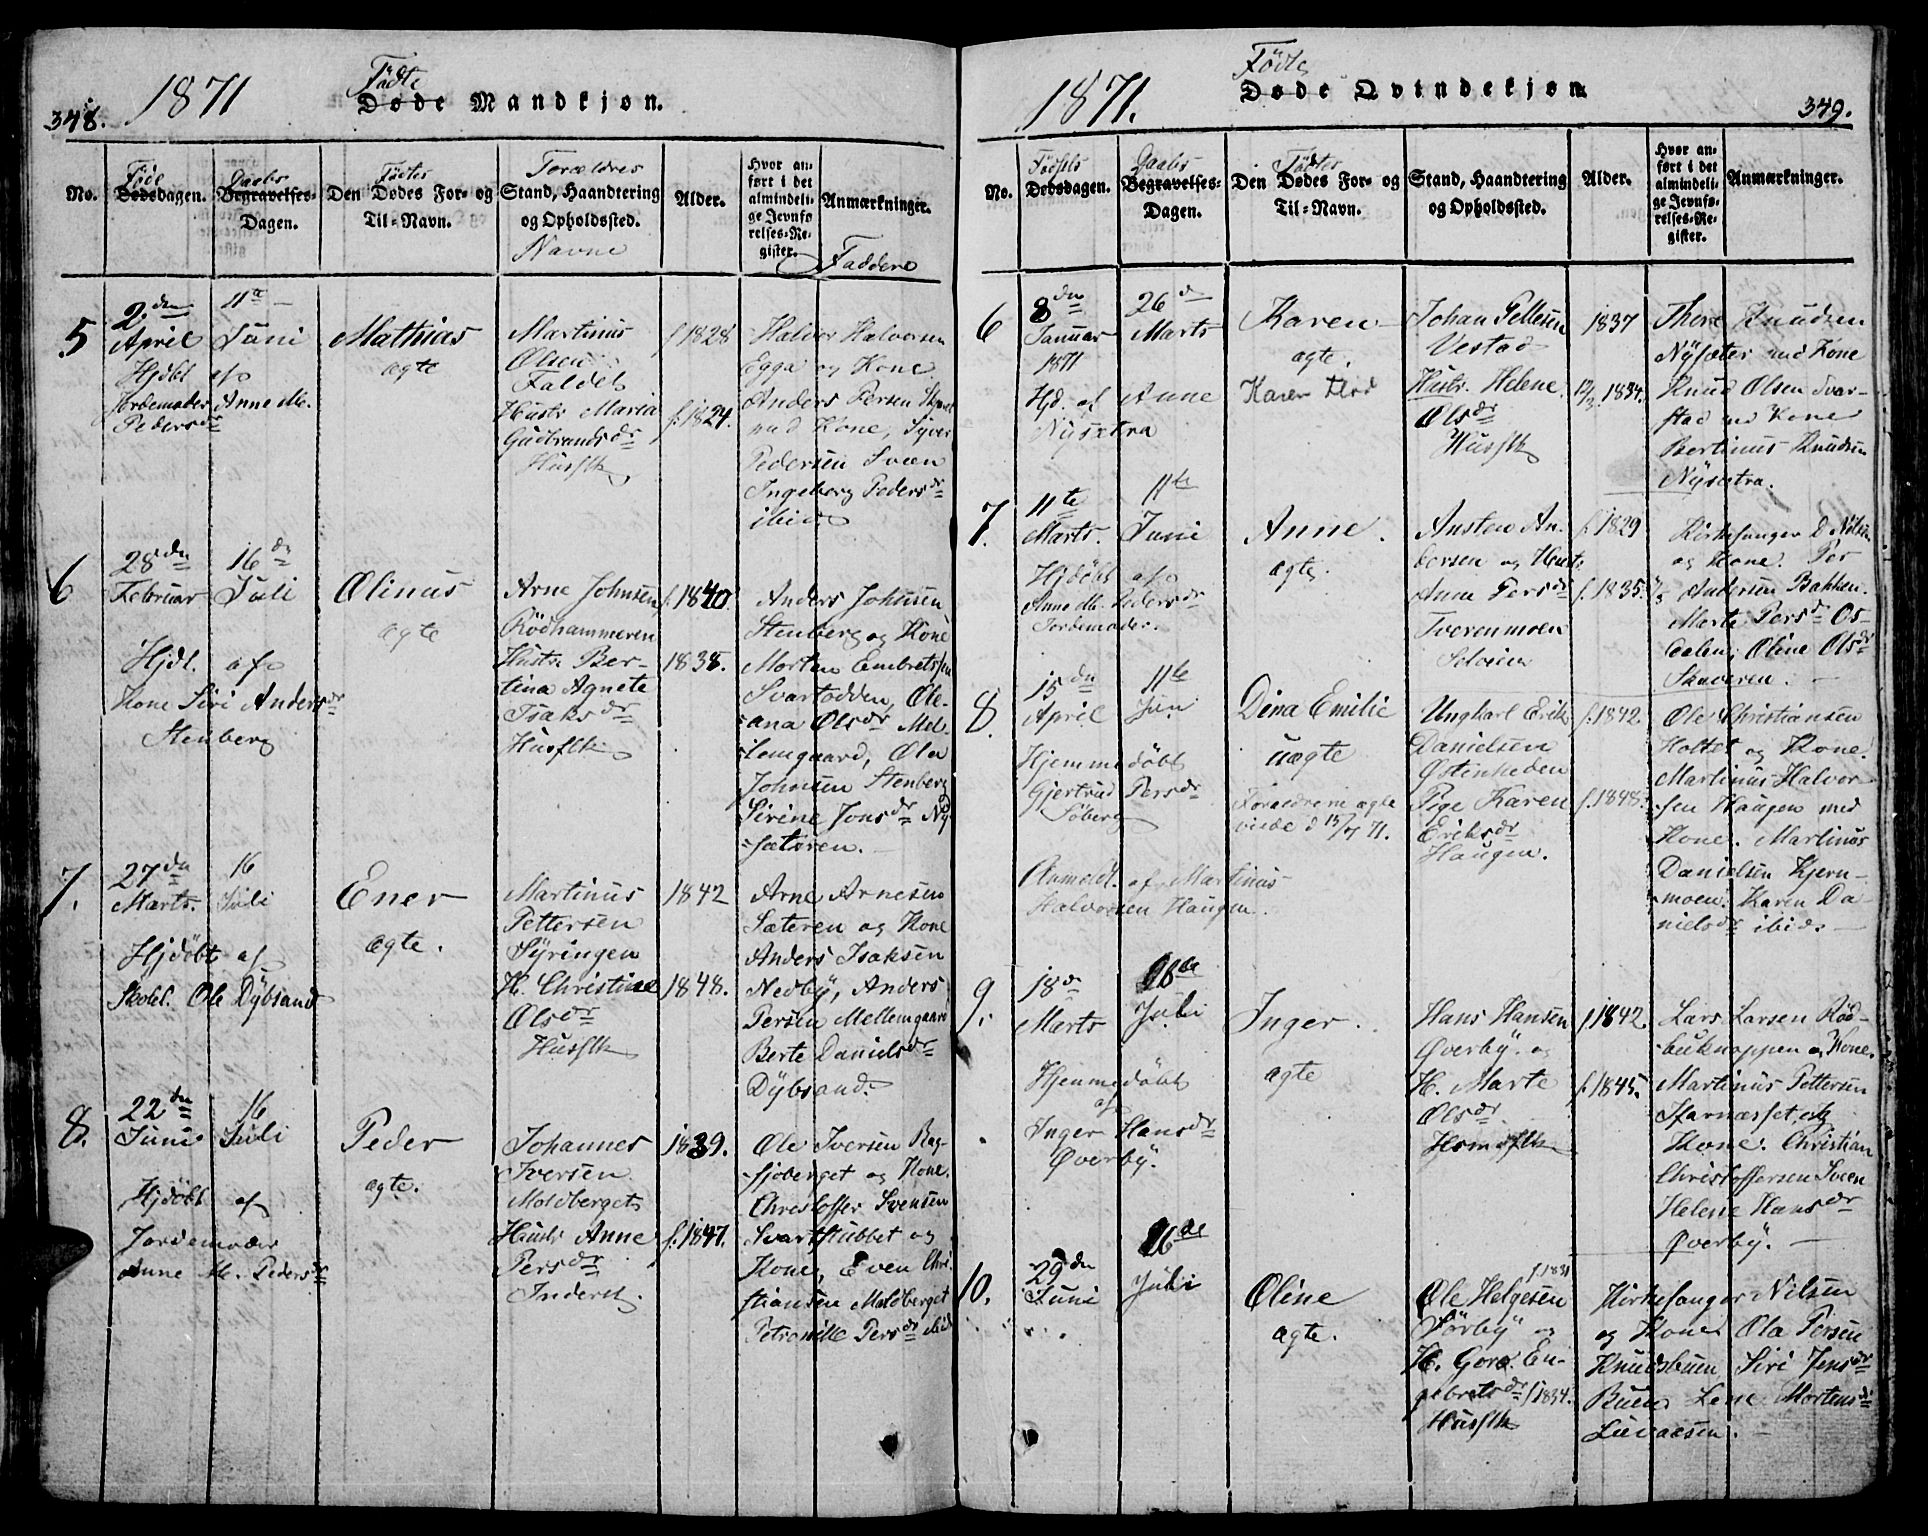 348.
1871
Födte
Døde Mandkjøn.
No.
Föde
Dødsdagen.
Daabs
Begravelses-
Dagen.
Födtes
Den Dødes For- og
Til-Navn.
Forældres
Stand, Haandtering
og Opholdssted.
Navne
Alder.
Hvor an-
ført i det
almindeli-
ge Jevnfø
relses-Re-
gister.
Anmærkninger.
Faddere
5
2den
April
11te
Juni
Hjdbt af
Jordemoder Anne M.
Pedersdr
Mathias
ægte
Martinus
Olsen
Faldet
Hustr Maria
Gudbrandsdr
Husflk
f. 1828
f. 1824.
Halvor Halvorsen
Egga og Kone
Anders Persen
med Kone, Syver
Pedersen Svæn
Ingeborg Pedersdr
ibid
6
28dn
Februar
16dn
Juli
Hjdl. af
Kone Siri Andersdr
Stenberg
Olinus
ægte
Arne Johnsen
Rödhammeren
Hustr Ber-
tina Agnete
Isaksdr
Husflk
f. 1840.
1838.
Anders Johnsen
Stenberg og Kone
Morten Embretsen
Svartodden, Ole-
ana Olsdr Mel-
lemgaard, Olea
Johnsen Stenberg
Sirine Jonsdr Ny-
sætøren.
7.
27dn
Marts.
16
Juli
Hjdöbt af
Skolel. Ole Dybsand
Ener
ægte.
Martinus
Pettersen
Syringen
H. Christine
Olsdr
Husflk
1842
1848.
Arne Arnesen
Sæteren og Kone
Anders Isaksen
Nedby, Anders
Persen Mellemgaard
Berte Danielsdr
Dybsand.
8.
22dn
Juni
16
Juli
Hjdöbt af
Jordemoder
Anne M. Pedersdr
Peder
ægte.
Johannes
Iversen
Moldberget
Hustr Anne
Persdr
Inderst.
1839.
f. 1847.
Ole Iversen Bag-
sjoberget og Kone.
Christoffer Svensen
Svartstubbet og
Kone, Even Chri-
stiansen Moldberget
Petronille Persdr ibid
1871.
Födte
Døde Qvindekjøn
349.
No.
Födsels
Dødsdagen.
Daabs
Begravelses-
Dagen.
Födtes
Den Dødes For- og
Til-Navn.
Stand, Haandtering
og Opholdssted.
Alder.
Hvor an-
ført i det
almindeli-
ge Jevnfø-
relses-Re-
gister.
Anmærkninger.
6
8dn
Januar
1871
26d
Marts
Hjd. af Anne
Nysætra
Karen
ægte.
Karen
Johan Pettersen
Vestad
Hustr. Helene
Olsdr
Husflk
1837
12/3 1834.
Thore Knudsen
Nysæter med Kone
Knud Olsen Svar-
stad med Kone
Bertinus Knudsen
Nysætra.
7.
11te
Marts.
11te
Juni
Hjdöbt af
Anne M. Pedersdr
Jordemoder.
Anne.
ægte.
Austen An-
dersen og Hustr
Anne Persdr
Tverenmoen
Selveier
f. 1829
f. 1835.
Kirkesanger D Nilsen
og Kone. Per
Andersen Bakken.
Marte Persdr Os-
dalen, Oline Olsdr
Skaveren.
8.
15dn
April
11te
Jun
Hjemmedöbt
Gjertrud Persdr
Söberg
Anmeldt. af Martinus
Halvorsen Haugen.
Dina Emilie
uægte
Forældrene ægte
viede d 15/7 71.
Ungkarl Erik
Danielsen
Østenheden
Pige Karen
Eriksdr
Haugen.
f. 1842.
f. 1848.
Ole Christiansen
Holtet og Kone
Martinus Halvor-
sen Haugen med
Kone. Martinus
Danielsen Kjern-
moen. Karen Da-
nielsdr ibid.
9.
18d
Marts
16de
Juli
Hjemmedöbt
af
Inger Hansdr
Øverby.
Inger.
ægte
Hans Hansen
Øverby. og
H. Marte
Olsdr
f. 1842.
f. 1845.
Lars Larsen Röd-
buknappen og Kone.
Martinus Pettersen
Kone. Christian
Christoffersen Sveen
Helene Hansdr
Øverby.
10.
29dn
Juni
16de
Juli
Oline
ægte.
f 1831
Ole Helgesen
Sörby og
H. Goro En-
gebretsdr f 1834.
Husflk
Kirkesanger Nilsen
og Kone Ola Persen
Knudsbuen Siri Jensdr
Buen Lene Mortensdr